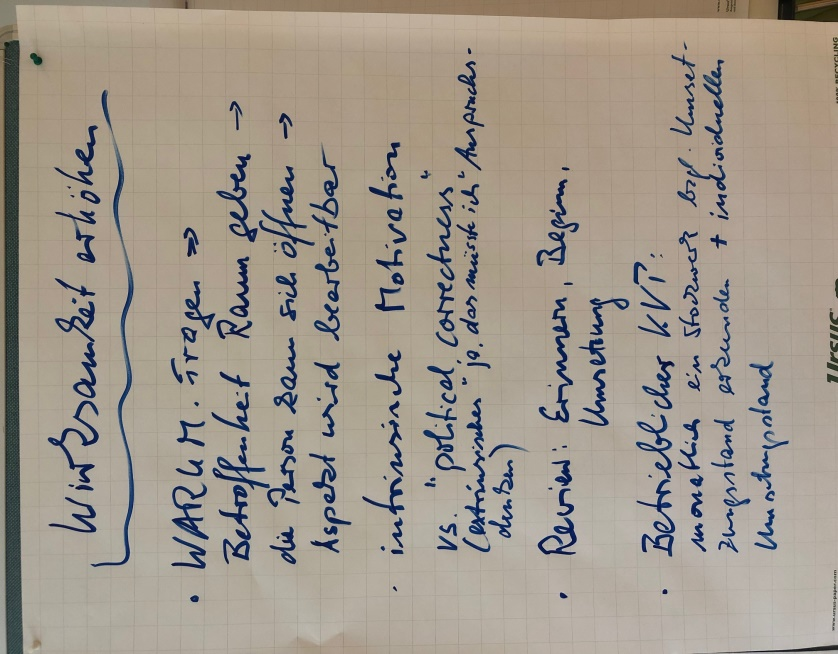 Wirksamkeit erhöhen
• WARUM-Fragen ⇒
Betroffenheit Raum geben →
die Person kann sich öffnen →
Aspekt wird bearbeitbar
• intrinsische Motivation
vs. "political correctness"
(extrinsisches "ja, das müsste ich" Anspruchs-
denken)
• Review: Erinnern, Beginn,
Umsetzung
• Betrieblicher KVT:
monatlich ein Stockwerk bzgl. Umset-
zungsstand erkunden + individuellen
Umsetzungsstand
Ursus
RECYCLING